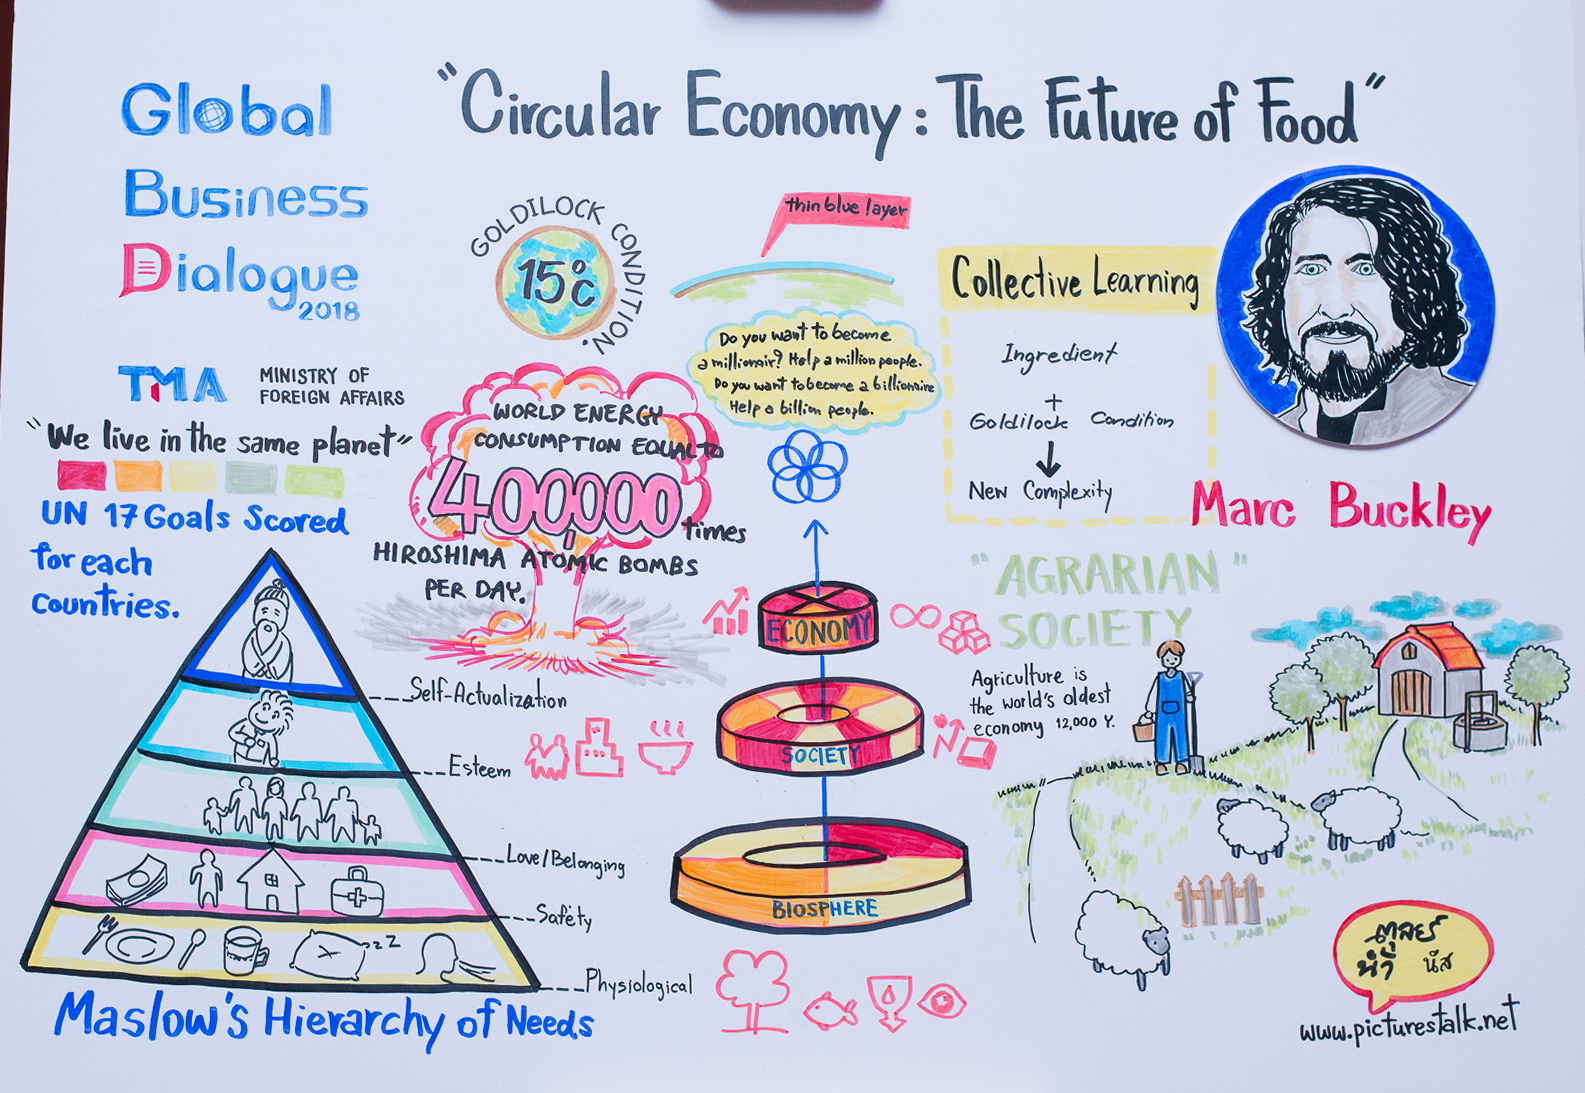 Global
Business
Dialogue
2018
TMA
MINISTRY OF
FOREIGN AFFAIRS
"Circular Economy: The Future of Food"
"We live in the same planet"
UN 17 Goals Scored
for each
countries.
Self-Actualization
Esteem
Love/Belonging
Safety
zzZ
Physiological
Maslow's Hierarchy of Needs
GOLDILOCK CONDITION.
15°c
WORLD ENERGY
CONSUMPTION EQUAL TO
400,000 times
HIROSHIMA ATOMIC BOMBS
PER DAY.
thin blue layer
Do you want to become
a millionair? Help a million people.
Do you want to become a billionaire
Help a billion people.
ECONOMY
SOCIETY
BIOSPHERE
Collective Learning
Ingredient
+
Goldilock Condition
New Complexity
Marc Buckley
"AGRARIAN"
SOCIETY
Agriculture is
the world's oldest
economy 12,000 Y.
นัส
www.picturestalk.net